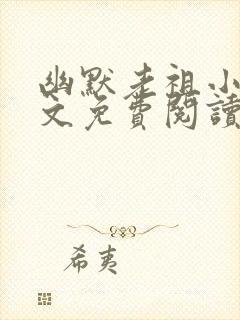 幽默老祖小
文免費閱讀
希夷